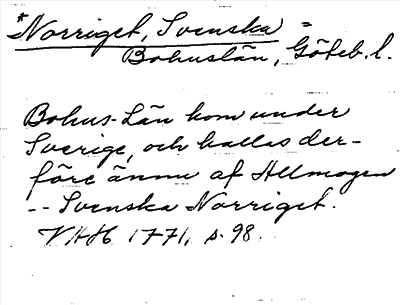 *Norriget, Svenska =
Bohuslän, Göteb. l.
Bohus-Län kom under
Sverige, och kallas der-
före ännu af Allmogen
-- Svenska Norriget.
VAH 1771, s. 98.